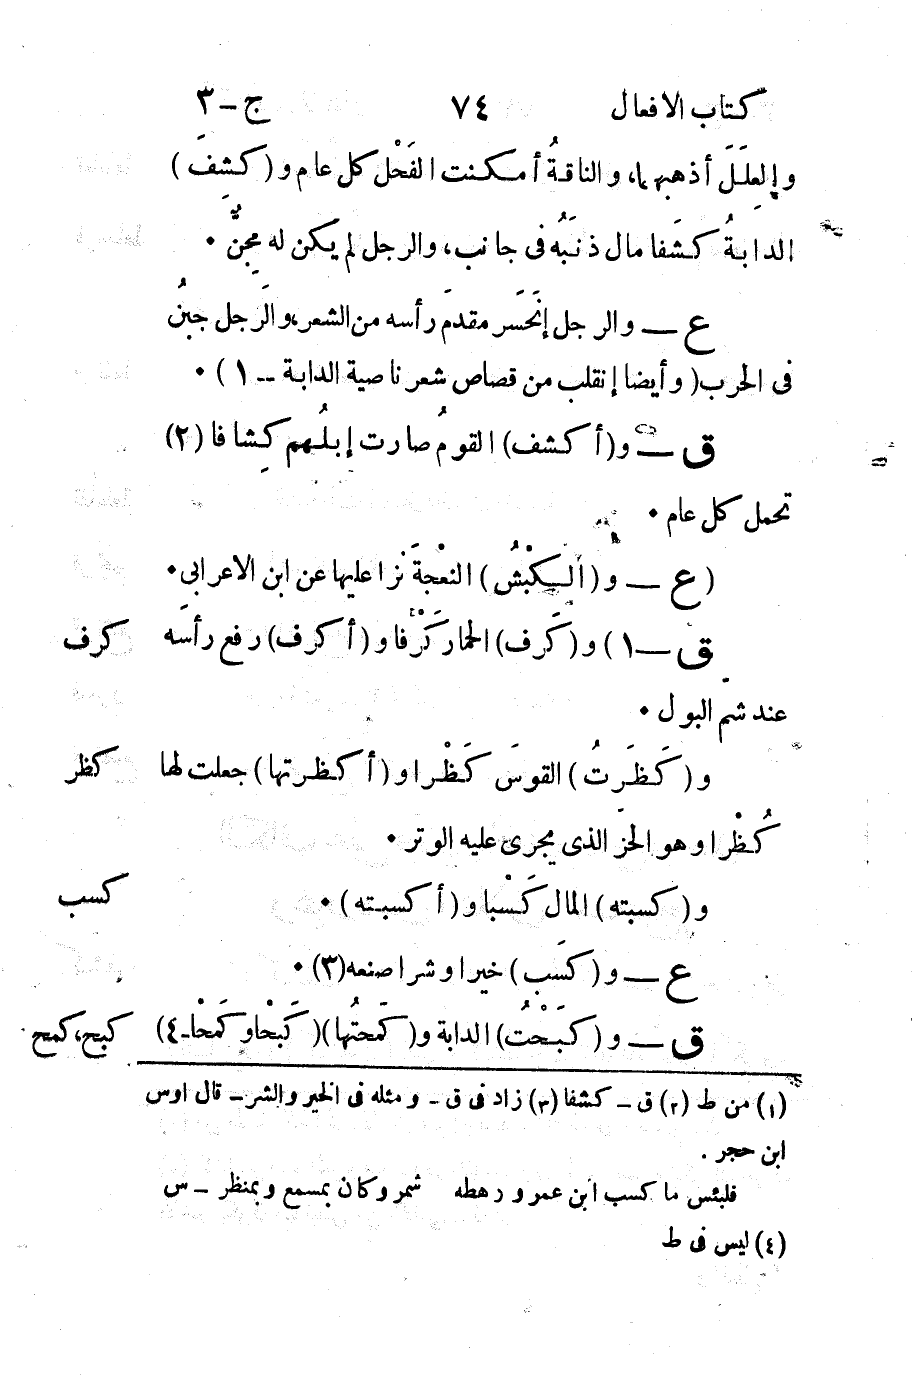 كتاب الافعال ٧٤ ج – ٣
والعِلَلَ أذهبها، والناقةُ أمكنت الفَحْل كل عام و (كَشِفَ)
الدابةُ كَشَفا مال ذنَبُه فى جانب، والرجل لم يكن له مِجنٌّ ٠
ع — والرجل إنَحَسَر مقدمَ رأسه من الشعر، والرجل جبنُ
فى الحرب (وأيضا إنقلب من قصاص شعر ناصية الدابة – ١) ٠
ق — و (أكشف) القومُ صارت إبلُهم كِشافا (٢)
تحمل كل عام ٠
(ع — و (الكبْشُ) النعْجةَ نزا عليها عن ابن الاعرابى ٠
كرف ق — ١) و (كَرف) الحمار كَرْفا و (أكرف) رفع رأسَه
عند شم البول ٠
كظر و (كَظَرَتُ) القوسَ كَظْرا و (أكظرتها) جعلت لها
كُظْرا وهو الحَز الذى يجرى عليه الوتر ٠
كسب و (كسبته) المال كَسْبا و (أكسبته) ٠
ع — و (كسَب) خيرا وشرا صنعه (٣) ٠
كبح، كمح ق — و (كبَحْتُ) الدابة و (كمَحتُها) (كَبْحا وكَمْحا ـ ٤)
(١) من ط (٢) ق – كشفا (٣) زاد فى ق - ومثله فى الخير والشر – قال اوس
ابن حجر .
فلبئس ما كسب ابن عمرو رهطه شمر وكان بمسمع وبمنظر – س
(٤) ليس فى ط